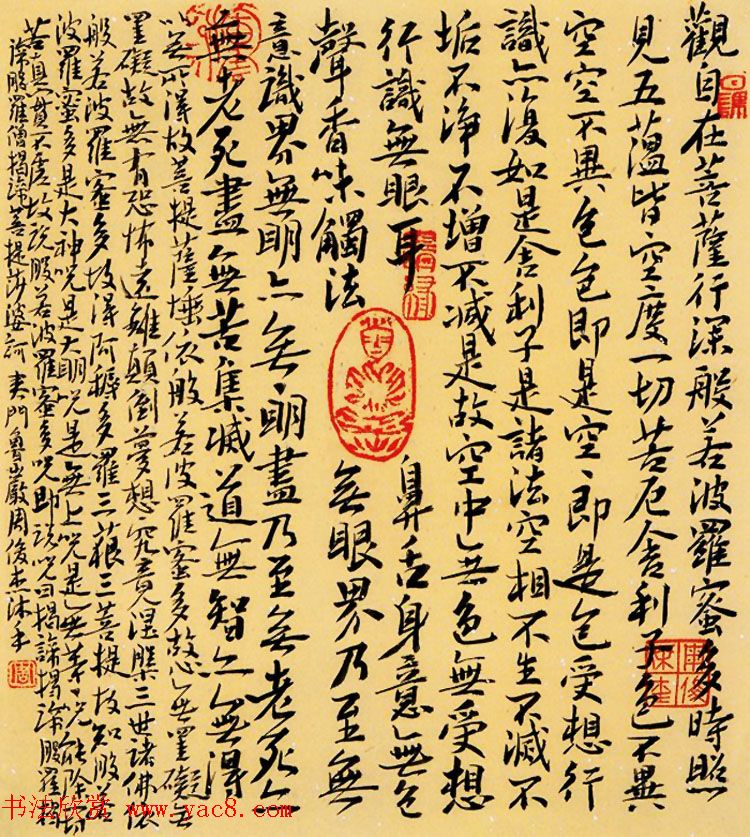 觀自在菩薩行深般若波羅蜜多時照
見五蘊皆空度一切苦厄舍利子色不異
空空不異色色即是空、即是色受想行
識亦復如是舍利子是諸法空相不生不滅不
垢不淨不增不減是故空中無色無受想
行識無眼耳鼻舌身意無色
聲香味觸法無眼界乃至無
意識界無明亦無、明盡乃至無老死亦
無老死盡無苦集滅道無智亦無得
以無所得故菩提薩埵依般若波羅蜜多故心無罣礙無
罣礙故無有恐怖遠離顛倒夢想究竟涅槃三世諸佛依
般若波羅蜜多故得阿耨多羅三藐三菩提故知般若
波羅蜜多是大神咒是大明咒是無上咒是無等咒能除一切
苦真實不虛故說般若波羅蜜多咒即說咒曰揭諦揭諦般羅揭
諦般羅僧揭諦菩提莎婆訶 夷門魯巖周俊杰沐手
书法欣赏 www.yac8.com